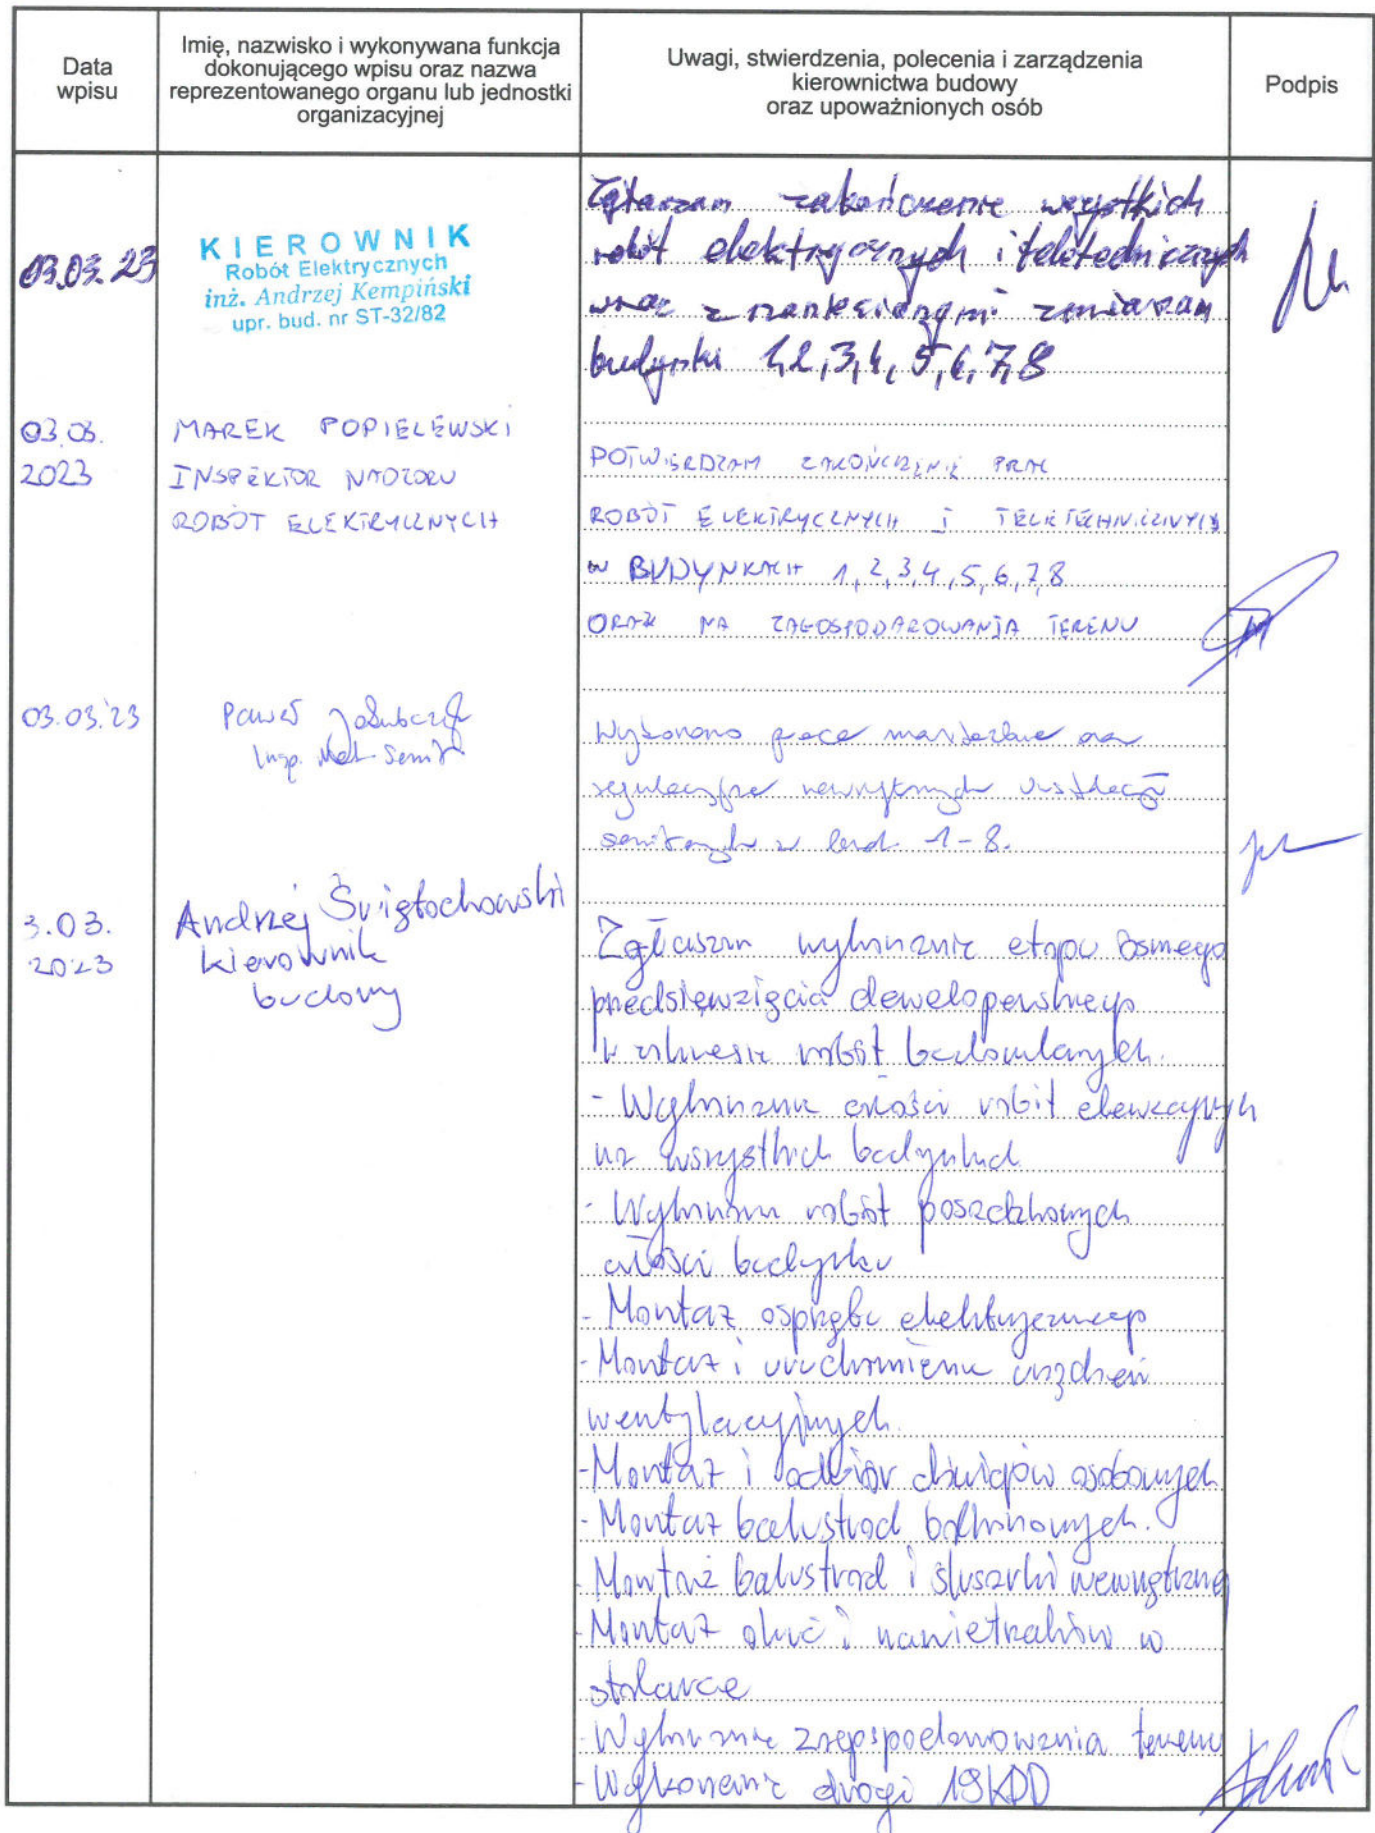 Data
wpisu
Imię, nazwisko i wykonywana funkcja
dokonującego wpisu oraz nazwa
reprezentowanego organu lub jednostki
organizacyjnej
Uwagi, stwierdzenia, polecenia i zarządzenia
kierownictwa budowy
oraz upoważnionych osób
Podpis
03.03.23
KIEROWNIK
Robót Elektrycznych
inż. Andrzej Kempiński
upr. bud. nr ST-32/82
Zgłaszam zakończenie wszystkich
robót elektrycznych i teletechnicznych
wraz z
budynki 1,2,3,4,5,6,7,8
03.03.
2023
MAREK POPIELEWSKI
INSPEKTOR NADZORU
ROBÓT ELEKTRYCZNYCH
POTWIERDZAM ZAKOŃCZENIE PRAC
ROBÓT ELEKTRYCZNYCH I TELETECHNICZNYCH
W BUDYNKACH 1,2,3,4,5,6,7,8
ORAZ NA ZAGOSPODAROWANIA TERENU
03.03.23
Paweł
Insp.
Wykonano prace
wewnętrznych instalacji
sanitarnych w bud. 1-8.
3.03.
2023
Andrzej Świętochowski
kierownik
budowy
Zgłaszam wykonanie etapu ósmego
przedsięwzięcia deweloperskiego
w zakresie robót budowlanych.
- Wykonanie całości robót elewacyjnych
na wszystkich budynkach
- Wykonanie robót posadzkowych
całości budynku
- Montaż osprzętu elektrycznego
- Montaż i uruchomienie urządzeń
wentylacyjnych.
- Montaż i odbiór dźwigów osobowych
- Montaż balustrad balkonowych.
- Montaż balustrad i ślusarki wewnętrznej
- Montaż okuć i nawietrzaków w
stolarce
- Wykonanie zagospodarowania terenu
- Wykonanie drogi 19KDD